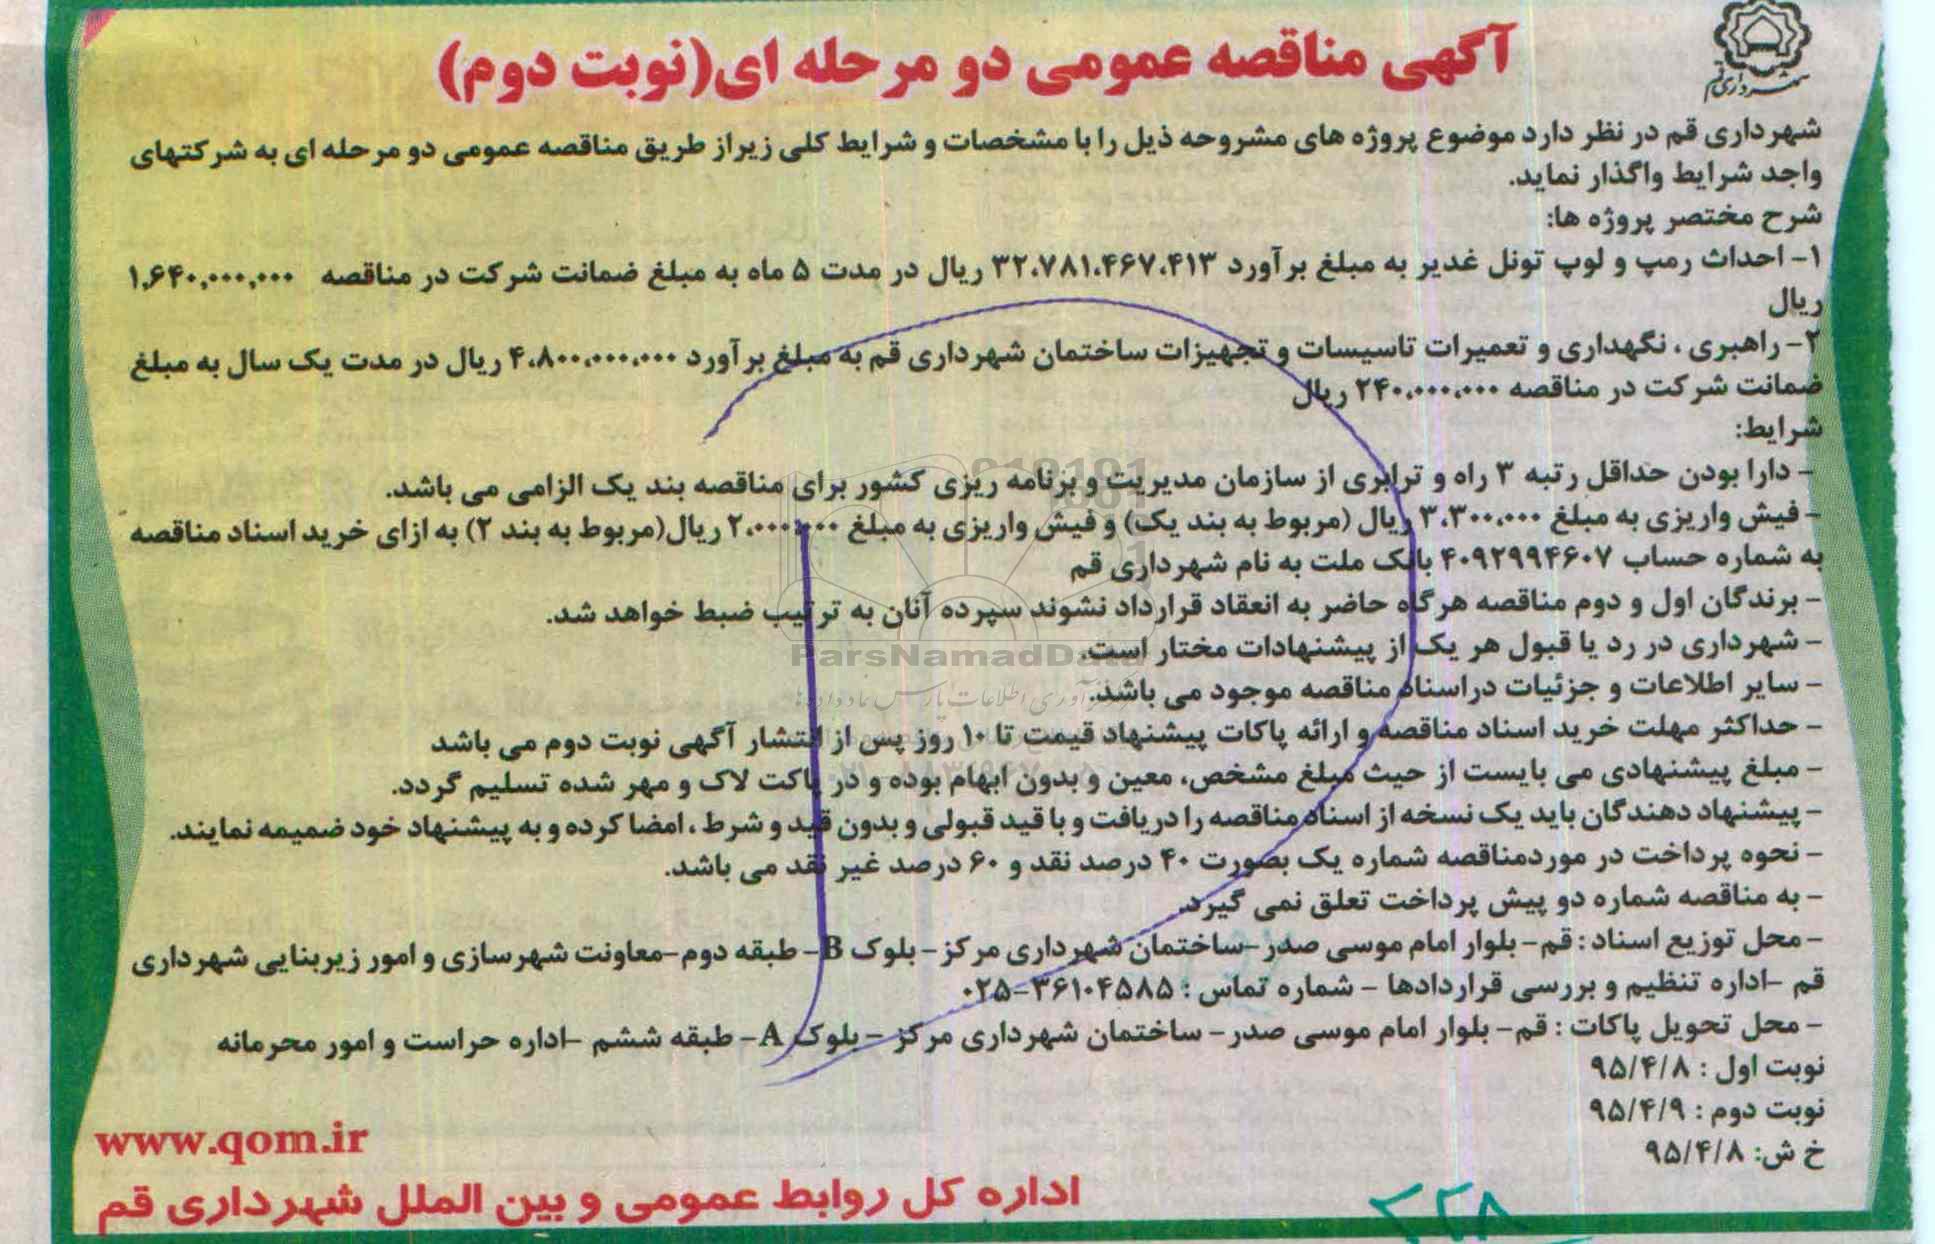 شهرداری قم
آگهی مناقصه عمومی دو مرحله ای(نوبت دوم)
شهرداری قم در نظر دارد موضوع پروژه های مشروحه ذیل را با مشخصات و شرایط کلی زیراز طریق مناقصه عمومی دو مرحله ای به شرکتهای
واجد شرایط واگذار نماید.
شرح مختصر پروژه ها:
۱- احداث رمپ و لوپ تونل غدیر به مبلغ برآورد ۳۲،۷۸۱،۴۶۷،۴۱۳ ریال در مدت ۵ ماه به مبلغ ضمانت شرکت در مناقصه ۱,۶۴۰,۰۰۰,۰۰۰
ریال
۲- راهبری ، نگهداری و تعمیرات تاسیسات و تجهیزات ساختمان شهرداری قم به مبلغ برآورد ۴،۸۰۰،۰۰۰،۰۰۰ ریال در مدت یک سال به مبلغ
ضمانت شرکت در مناقصه ۲۴۰،۰۰۰،۰۰۰ ریال
شرایط:
- دارا بودن حداقل رتبه ۳ راه و ترابری از سازمان مدیریت و برنامه ریزی کشور برای مناقصه بند یک الزامی می باشد.
- فیش واریزی به مبلغ ۳،۳۰۰،۰۰۰ ریال (مربوط به بند یک) و فیش واریزی به مبلغ ۲،۰۰۰،۰۰۰ ریال(مربوط به بند ۲) به ازای خرید اسناد مناقصه
به شماره حساب ۴۰۹۲۹۹۴۶۰۷ بانک ملت به نام شهرداری قم
- برندگان اول و دوم مناقصه هرگاه حاضر به انعقاد قرارداد نشوند سپرده آنان به ترتیب ضبط خواهد شد.
- شهرداری در رد یا قبول هر یک از پیشنهادات مختار است.
ParsNamadData
- سایر اطلاعات و جزئیات دراسناد مناقصه موجود می باشد.
- حداکثر مهلت خرید اسناد مناقصه و ارائه پاکات پیشنهاد قیمت تا ۱۰ روز پس از انتشار آگهی نوبت دوم می باشد
- مبلغ پیشنهادی می بایست از حیث مبلغ مشخص، معین و بدون ابهام بوده و در پاکت لاک و مهر شده تسلیم گردد.
- پیشنهاد دهندگان باید یک نسخه از اسناد مناقصه را دریافت و با قید قبولی و بدون قید و شرط ، امضا کرده و به پیشنهاد خود ضمیمه نمایند.
- نحوه پرداخت در موردمناقصه شماره یک بصورت ۴۰ درصد نقد و ۶۰ درصد غیر نقد می باشد.
- به مناقصه شماره دو پیش پرداخت تعلق نمی گیرد.
- محل توزیع اسناد : قم- بلوار امام موسی صدر -ساختمان شهرداری مرکز - بلوک B- طبقه دوم -معاونت شهرسازی و امور زیربنایی شهرداری
قم -اداره تنظیم و بررسی قراردادها - شماره تماس : ۳۶۱۰۴۵۸۵-۰۲۵
- محل تحویل پاکات : قم- بلوار امام موسی صدر- ساختمان شهرداری مرکز - بلوک A- طبقه ششم -اداره حراست و امور محرمانه
نوبت اول : ۹۵/۴/۸
نوبت دوم : ۹۵/۴/۹
خ ش: ۹۵/۴/۸
www.qom.ir
اداره کل روابط عمومی و بین الملل شهرداری قم